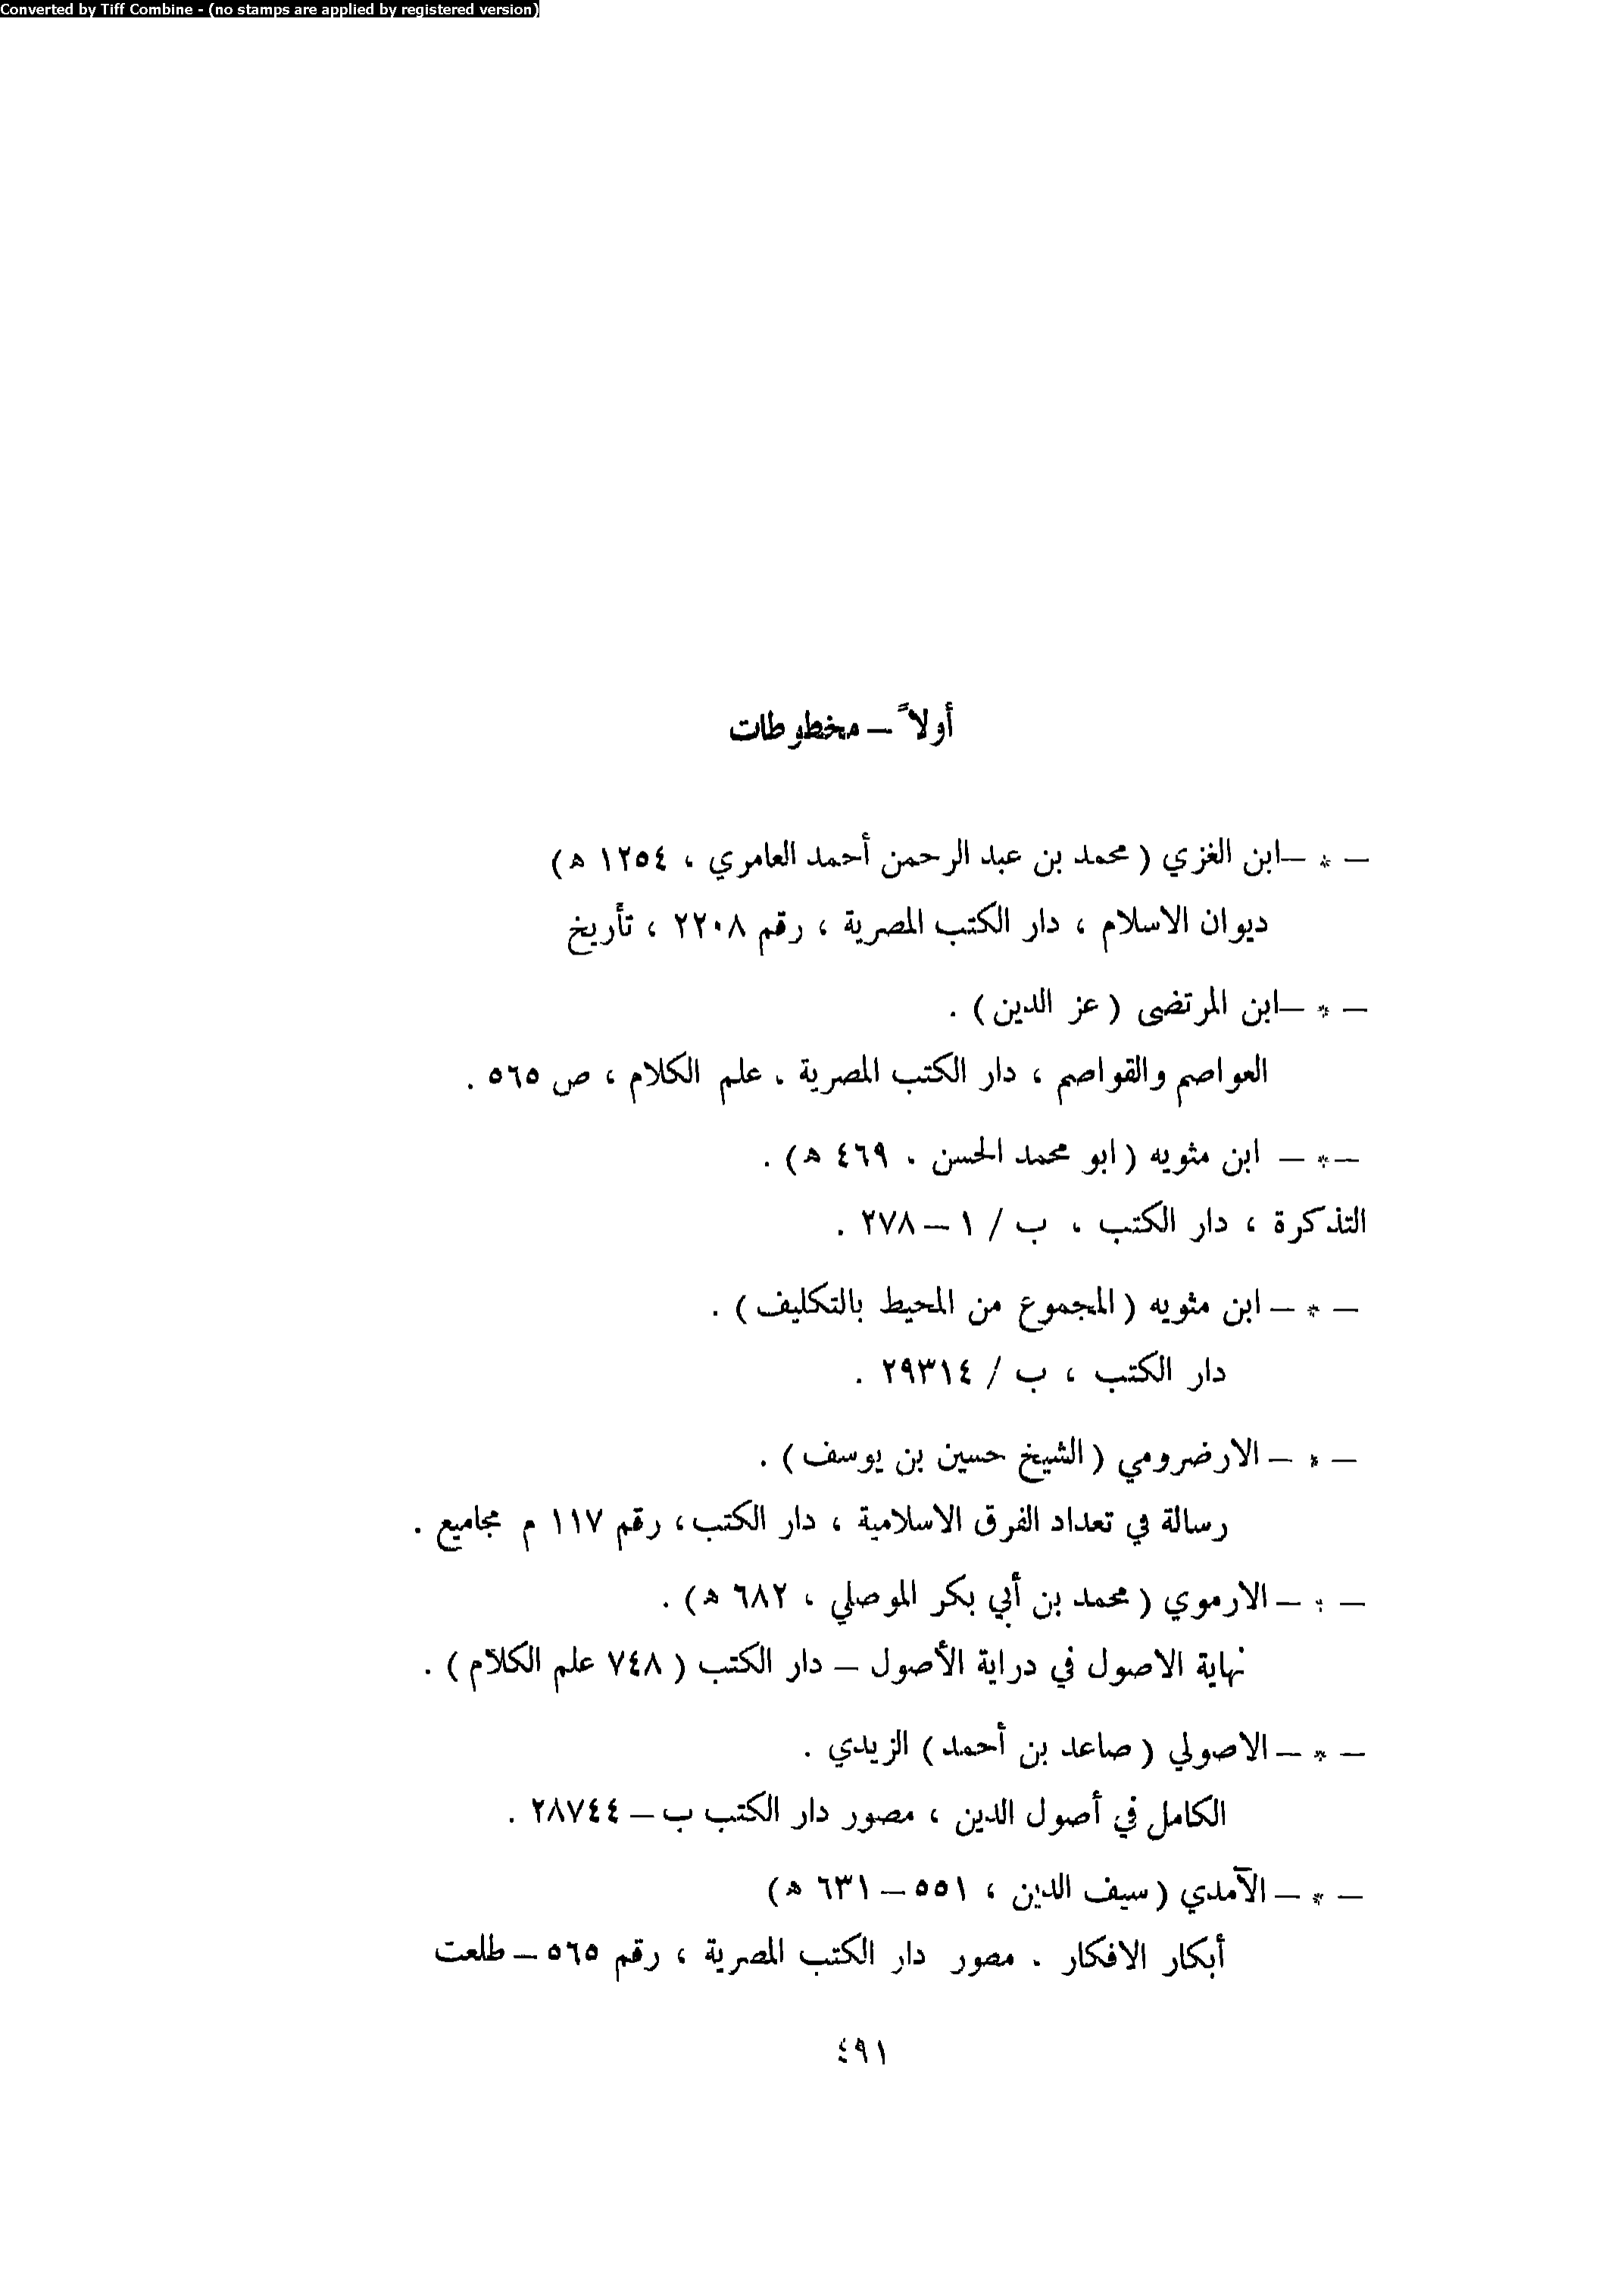 Converted by Tiff Combine - (no stamps are applied by registered version)
أولاً – مخطوطات
– * –ابن الغزي ( محمد بن عبد الرحمن أحمد العامري ، ١٢٥٤ ه)
ديوان الاسلام ، دار الكتب المصرية ، رقم ٢٢٠٨ ، تأريخ
– * –ابن المرتضى ( عز الدين ) .
العواصم والقواصم ، دار الكتب المصرية . علم الكلام ، ص ٥٦٥ .
– * – ابن مثويه ( ابو محمد الحسن ، ٤٦٩ ه) .
التذكرة ، دار الكتب ، ب / ١ – ٢٧٨ .
– * – ابن مثويه ( المجموع من المحيط بالتكليف ) .
دار الكتب ، ب / ٢٩٣١٤ .
– * – الارضرومي ( الشيخ حسين بن يوسف ) .
رسالة في تعداد الفرق الاسلامية ، دار الكتب ، رقم ١١٧ م مجاميع .
– * – الارموي ( محمد بن أبي بكر الموصلي ، ٦٨٢ ه) .
نهاية الاصول في دراية الأصول – دار الكتب ( ٧٤٨ علم الكلام ) .
– * – الاصولي ( صاعد بن أحمد ) الزيدي .
الكامل في أصول الدين ، مصور دار الكتب ب – ٢٨٧٤٤ .
– * – الآمدي ( سيف الدين ، ٥٥١ – ٦٣١ ه)
أبكار الافكار . مصور دار الكتب المصرية ، رقم ٥٦٥ – طلعت
٤٩١